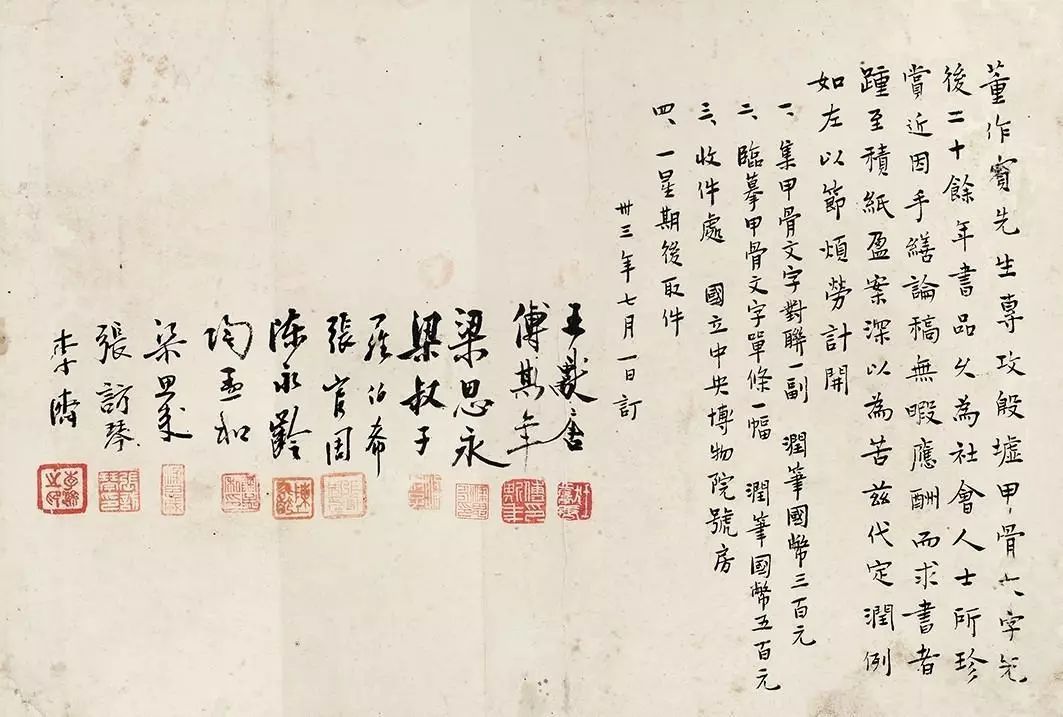 董作賓先生専攻殷墟甲骨文字先
後二十餘年書品久為社會人士所珍
賞近因手繕論稿無暇應酬而求書者
踵至積紙盈案深以為苦兹代定潤例
如左以節煩勞計開
一、集甲骨文字對聯一副　潤筆國幣三百元
二、臨摹甲骨文字單條一幅　潤筆國幣五百元
三、收件處　國立中央博物院號房
四、一星期後取件
卅三年七月一日訂
王獻唐
傅斯年
梁思永
梁叔子
羅伯希
張官周
陳永齡
陶孟和
梁思成
張訪琴
李濟